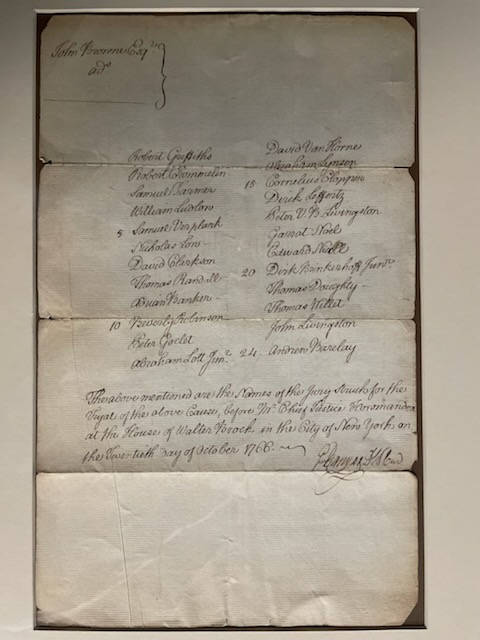 John Browne Esqr
ads
Robert Griffiths
Robert Crommelin
Samuel Farmer
William Ludlow
5 Samuel Verplank
Nicholas Low
David Clarkson
Thomas Randill
Brian Banker
10 Beverly Robinson
Peter Goelet
Abraham Lott Junr
David Van Horne
Abraham Lynsen
15 Cornelius Clopper
Dirck Leffertz
Peter V. B. Livingston
Garrat Noel
Edward Nicoll
20 Dirk Brinkerhoff Junr
Thomas Doughty
Thomas Willet
John Livingston
24. Andrew Barclay
The above mentioned are the Names of the Jury Struck for the
Tryal of the above Cause, before Mr. Chief Justice Horsmanden
at the House of Walter Brock in the City of New York on
the Twentieth day of October 1766.